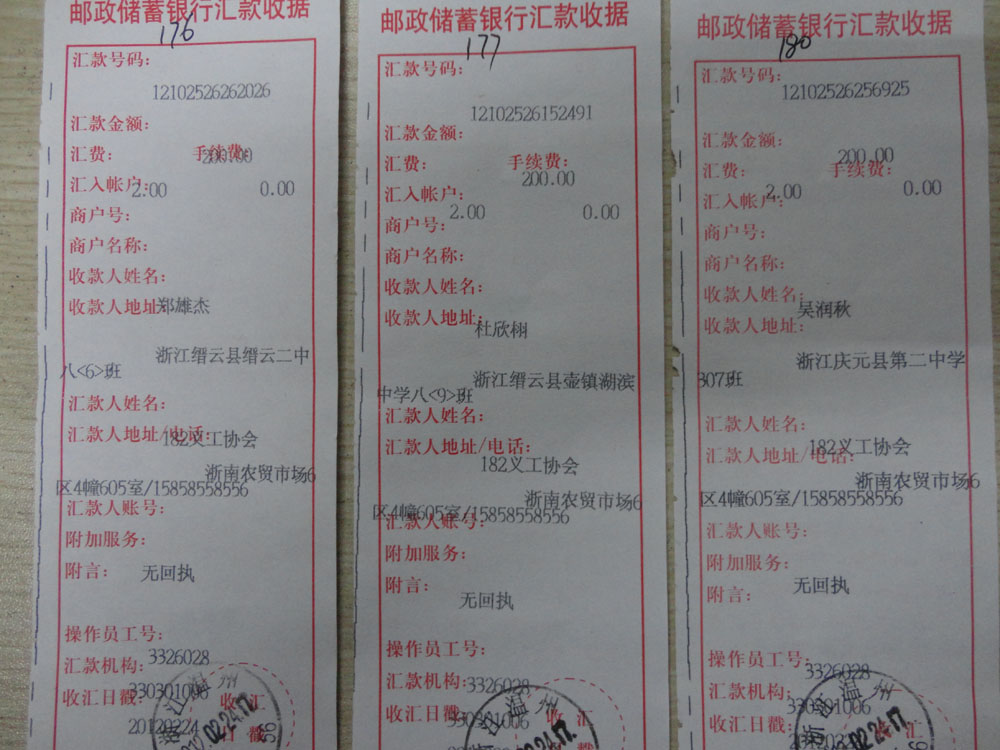 邮政储蓄银行汇款收据
176
汇款号码：
12102526262026
汇款金额：
汇费： 手续费：
200.00
汇入帐户：
2.00 0.00
商户号：
商户名称：
收款人姓名：
收款人地址：
郑雄杰
浙江缙云县缙云二中
八<6>班
汇款人姓名：
汇款人地址/电话：
182义工协会
浙南农贸市场6
区4幢605室/15858558556
汇款人账号：
附加服务：
附言： 无回执
操作员工号：
3326028
汇款机构：
330301006
收汇日戳： 收汇
20120224
戳
浙江温州
02.24.17
邮政储蓄银行汇款收据
177
汇款号码：
12102526152491
汇款金额：
汇费： 手续费：
200.00
汇入帐户：
2.00 0.00
商户号：
商户名称：
收款人姓名：
收款人地址：
杜欣栩
浙江缙云县壶镇湖滨
中学八<9>班
汇款人姓名：
汇款人地址/电话：
182义工协会
浙南农贸市场6
区4幢605室/15858558556
汇款人账号：
附加服务：
附言：
无回执
操作员工号：
汇款机构：
3326028
收汇日戳： 收汇
330301006
浙江温州
邮政储蓄银行汇款收据
180
汇款号码：
12102526256925
汇款金额：
200.00
汇费： 手续费：
汇入帐户：
2.00 0.00
商户号：
商户名称：
收款人姓名：
吴润秋
收款人地址：
浙江庆元县第二中学
307班
汇款人姓名：
182义工协会
汇款人地址/电话：
浙南农贸市场6
区4幢605室/15858558556
汇款人账号：
附加服务：
附言： 无回执
操作员工号：
3326028
汇款机构：
330301006
收汇日戳： 收汇
浙江温州